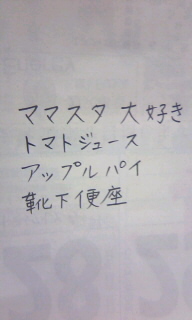 ママスタ 大好き
トマトジュース
アップルパイ
靴下便座